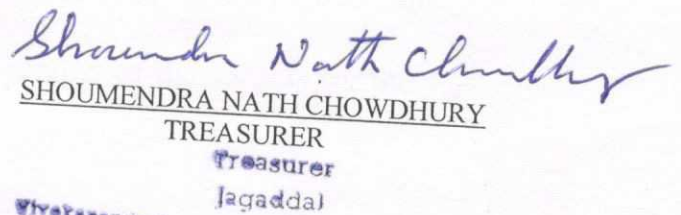 Shoumendra Nath Chowdhury
SHOUMENDRA NATH CHOWDHURY
TREASURER
Treasurer
Jagaddal